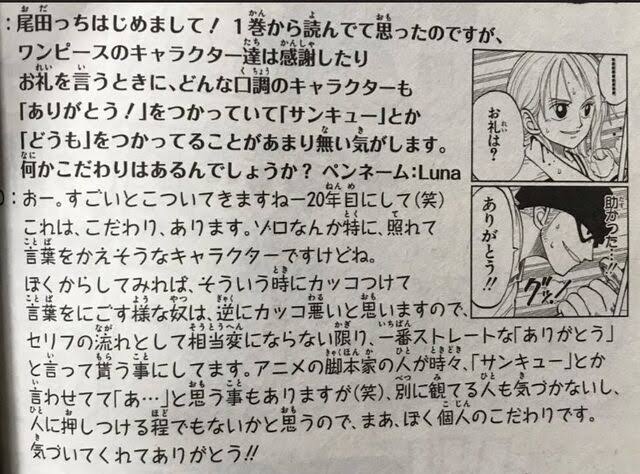 ：尾田っちはじめまして！ 1巻から読んでて思ったのですが、
ワンピースのキャラクター達は感謝したり
お礼を言うときに、どんな口調のキャラクターも
「ありがとう！」をつかっていて「サンキュー」とか
「どうも」をつかってることがあまり無い気がします。
何かこだわりはあるんでしょうか？ ペンネーム：Luna
O：おー。すごいとこついてきますねー20年目にして(笑)
これは、こだわり、あります。ゾロなんか特に、照れて
言葉をかえそうなキャラクターですけどね。
ぼくからしてみれば、そういう時にカッコつけて
言葉をにごす様な奴は、逆にカッコ悪いと思いますので、
セリフの流れとして相当変にならない限り、一番ストレートな「ありがとう」
と言って貰う事にしてます。アニメの脚本家の人が時々、「サンキュー」とか
言わせてて「あ…」と思う事もありますが(笑)、別に観てる人も気づかないし、
人に押しつける程でもないかと思うので、まあ、ぼく個人のこだわりです。
気づいてくれてありがとう!!
…………
お礼は？
助かった…!!
ありがとう!!
グッ!!